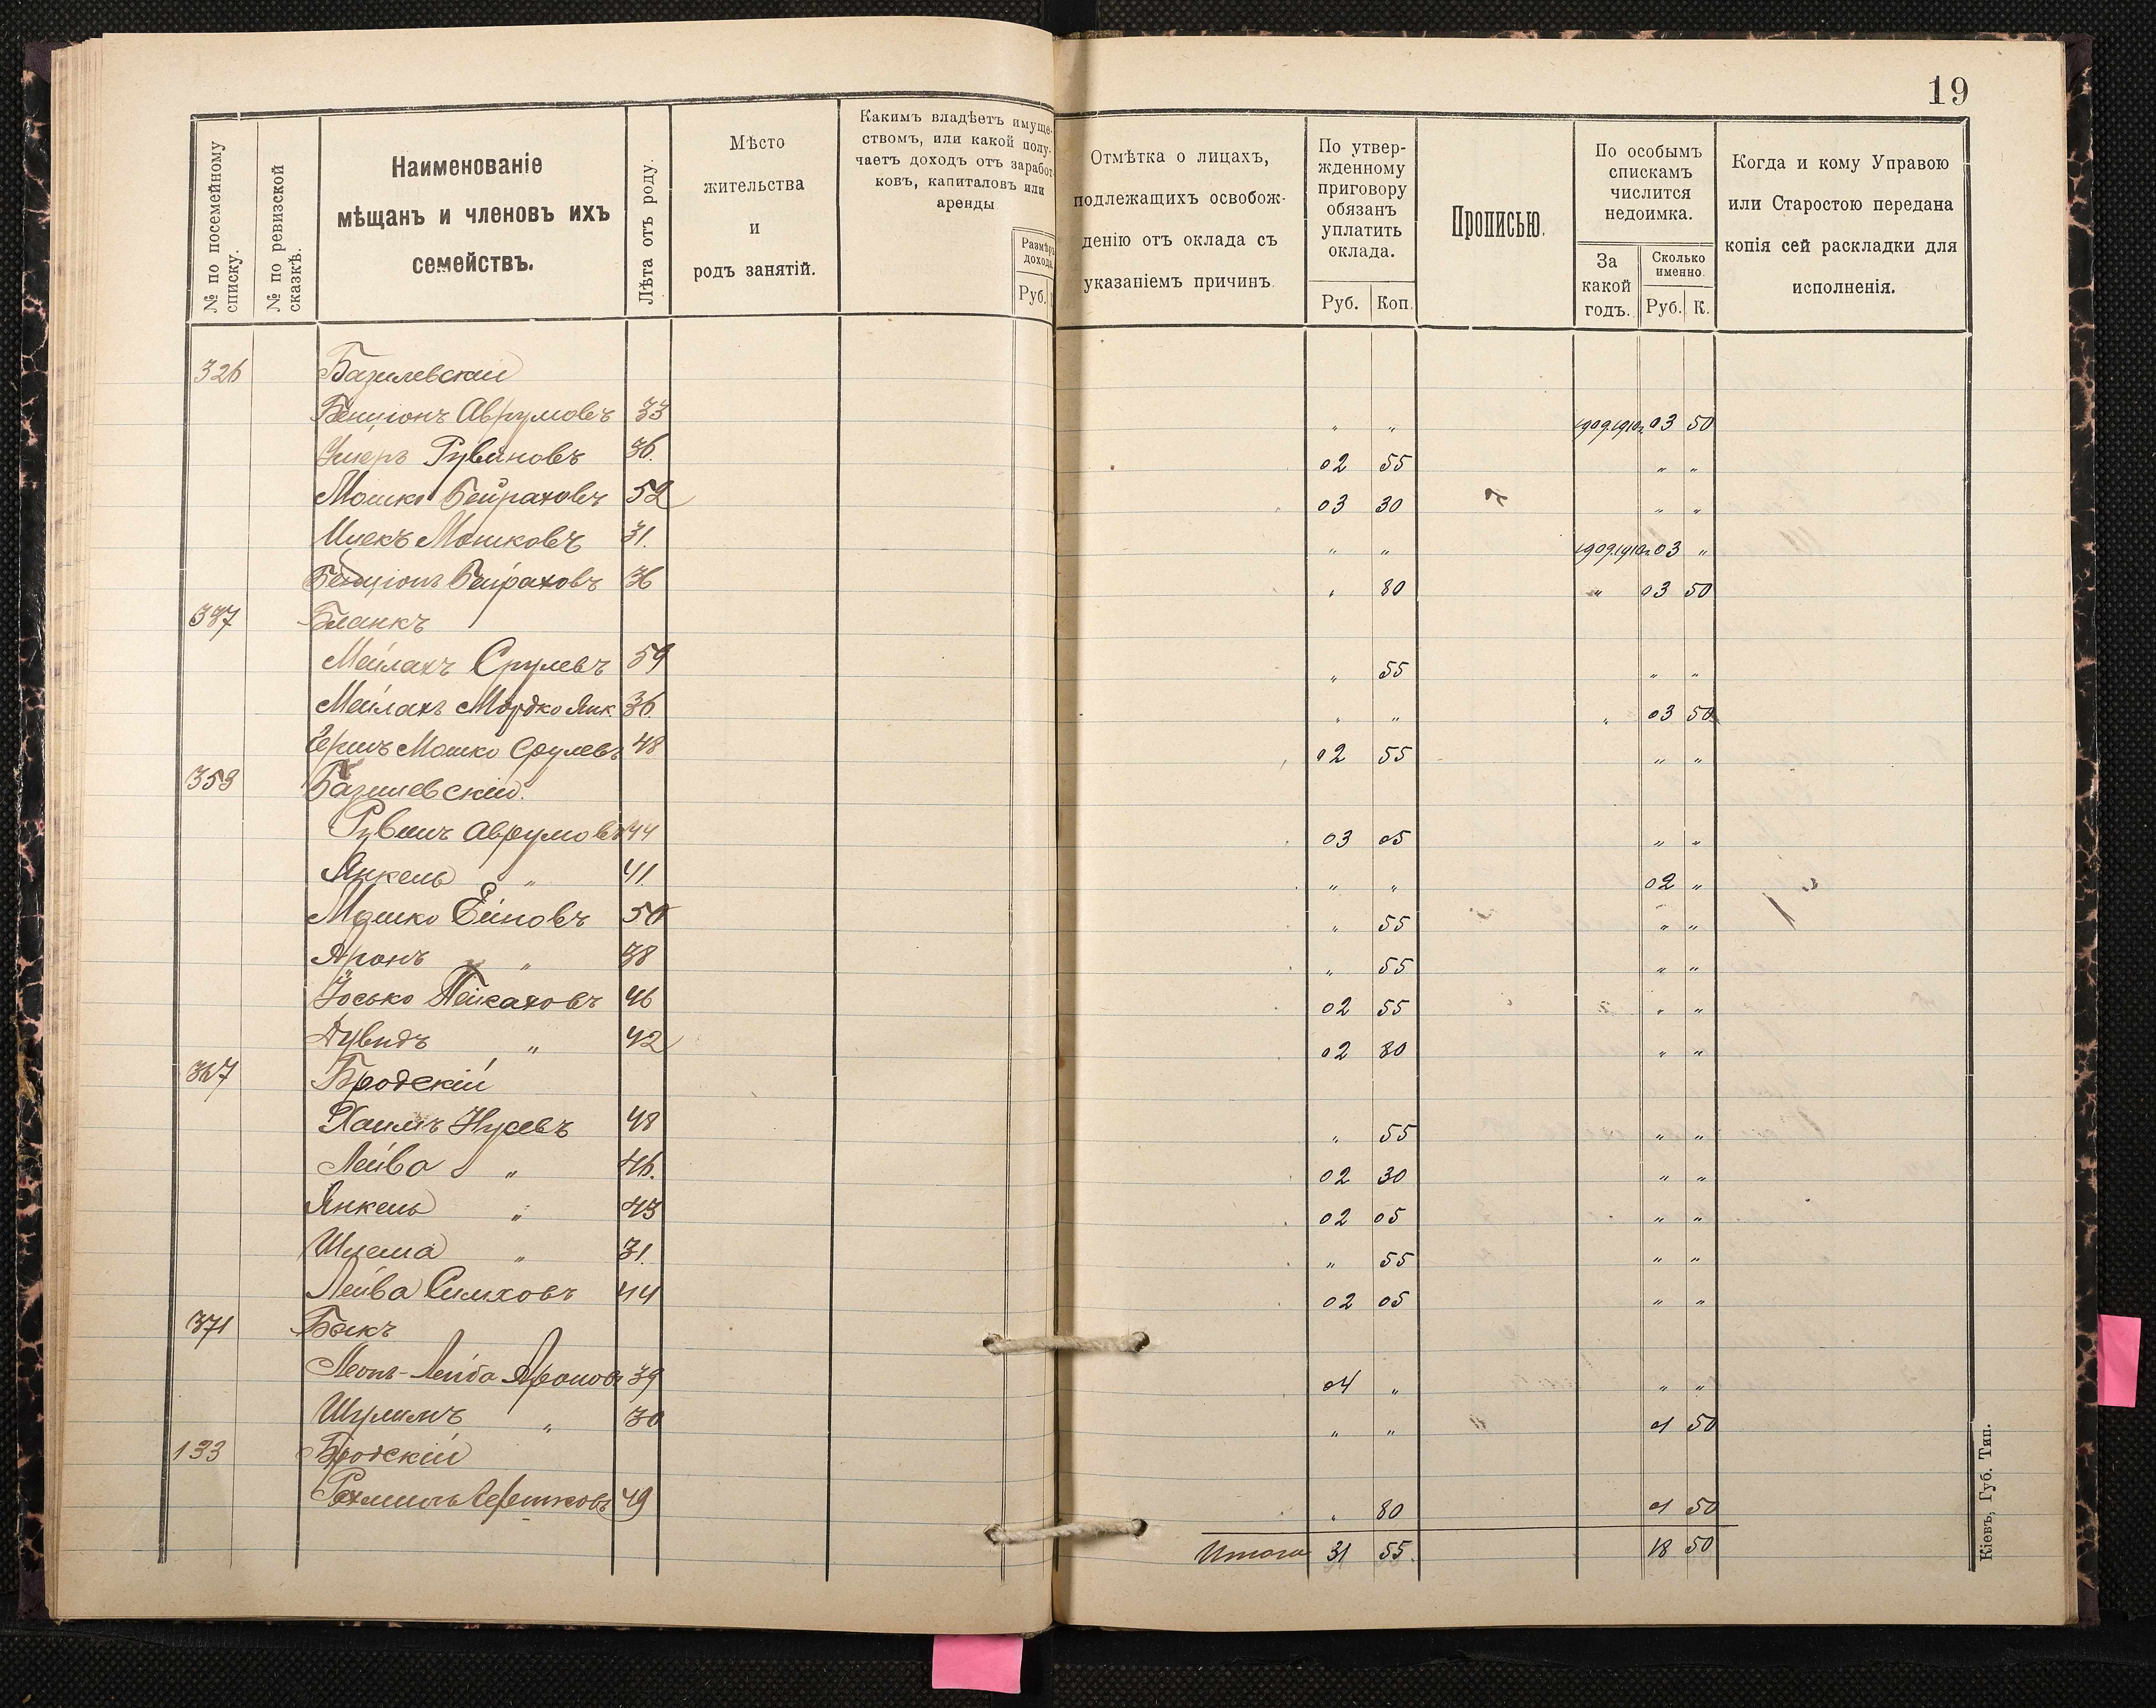 19
№ по посемейному списку.
№ по ревизской сказкѣ.
Наименованіе
мѣщанъ и членовъ ихъ
семействъ.
Лѣта отъ роду.
Мѣсто
жительства
и
родъ занятій.
Какимъ владѣетъ имуще-
ствомъ, или какой полу-
чаетъ доходъ отъ заработ-
ковъ, капиталовъ или
аренды
Размѣръ
дохода
Руб.
Отмѣтка о лицахъ,
подлежащихъ освобож-
денію отъ оклада съ
указаніемъ причинъ.
По утвер-
жденному
приговору
обязанъ
уплатить
оклада.
Руб. Коп.
Прописью.
По особымъ
спискамъ
числится
недоимка.
За
какой
годъ.
Сколько
именно.
Руб. К.
Когда и кому Управою
или Старостою передана
копія сей раскладки для
исполненія.
326 Базилевскій
Бенціонъ Аврумовъ 33 " " 1909.1910г. 03 50
Рувиновъ 36. 02 55 " "
Мошко Бейраховъ 52 03 30 " "
Ицекъ Мошковъ 31. " " 1909.1910г. 03 "
Бенціонъ Бейраховъ 36 " 80 " 03 50
337 Бланкъ
Мейлахъ Срулевъ 59 " 55 " "
Мейлахъ Мордко Янк. 36. " " " 03 50
Гершъ Мошко Срулевъ 48 02 55 " "
353 Базилевскій.
Рувинъ Аврумовъ 44 03 05 " "
Янкель " 41. " " 02 "
Мошко Ейновъ 50 " 55 " "
Аронъ " 38 " 55 " "
Іосько Пейсаховъ 46 02 55 " "
Дувидъ " 42 02 80 " "
367 Бродскій
Хаимъ Нусевъ 48 " 55 " "
Лейба " 46. 02 30 " "
Янкель " 43 02 05 " "
Шлема " 31. " 55 " "
Лейба Симховъ 44 02 05 " "
371 Бокъ
Меонъ-Лейба Ароновъ 39 04 " " "
Шулимъ " 30 " " 01 50
133 Бродскій
Рахмиль Гершковъ 49 " 80 01 50
Итого 31 55. 18 50
Кіевъ, Губ. Тип.